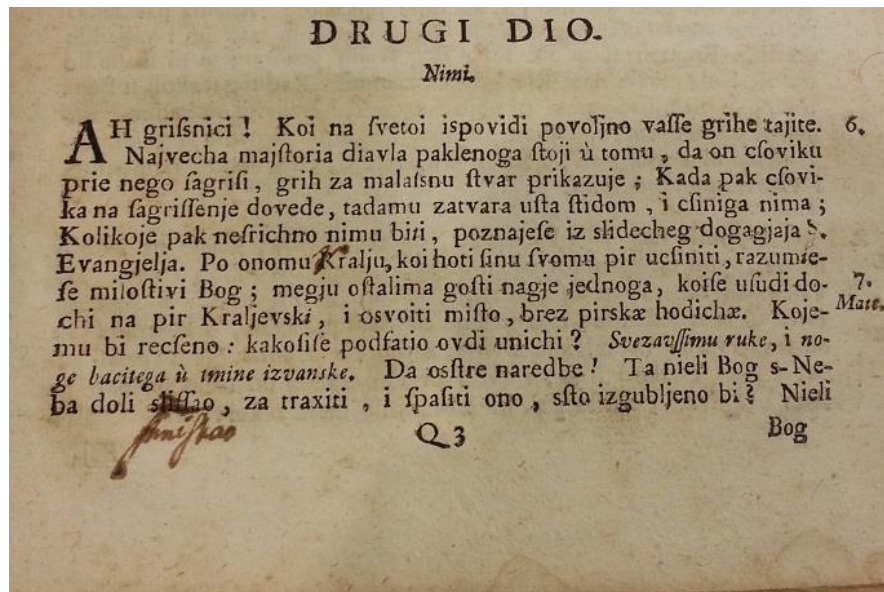 DRUGI DIO.
Nimi.
AH griſsnici ! Koi na ſvetoi ispovidi povoljno vaſſe grihe tajite. 6.
Najvecha majſtoria diavla paklenoga ſtoji ù tomu, da on cſoviku
prie nego ſagriſi, grih za malaſsnu ſtvar prikazuje ; Kada pak cſovi-
ka na ſagriſſenje dovede, tadamu zatvara uſta ſtidom , i cſiniga nima ;
Kolikoje pak neſrichno nimu biti, poznajeſe iz slidecheg dogagjaja S.
Evangjelja. Po onomu Kralju, koi hoti ſinu ſvomu pir ucſiniti, razumie-
ſe miloſtivi Bog ; megju oſtalima goſti nagje jednoga, koiſe uſudi do- 7.
chi na pir Kraljevski, i osvoiti miſto, brez pirskæ hodichæ. Koje- Matt.
mu bi recſeno : kakoſiſe podfatio ovdi unichi ? Svezavſſimu ruke, i no-
ge bacitega ù tmine izvanske. Da osſtre naredbe ! Ta nieli Bog s-Ne-
ba doli sliſſao, za traxiti , i ſpaſiti ono , sſto izgubljeno bi ? Nieli
Q 3 Bog